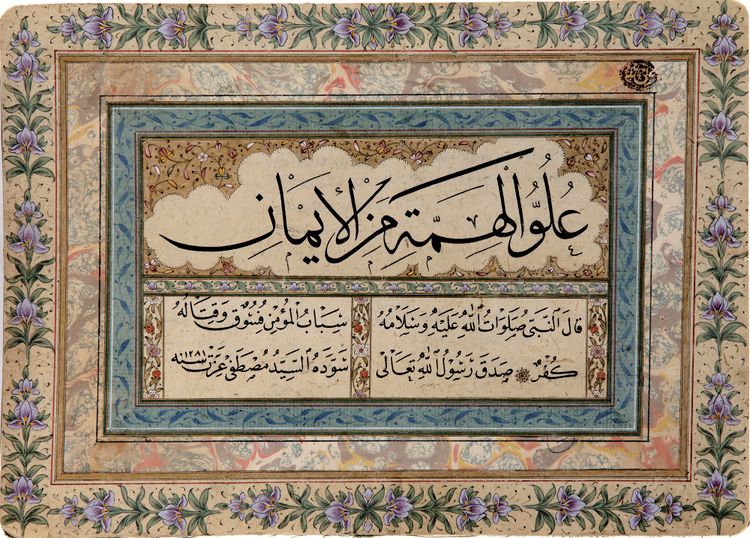 عُلُوُّ الْهِمَّةِ مِنَ الْإِيمَانِ
قَالَ النَّبِيُّ صَلَوَاتُ اللّٰهِ عَلَيْهِ وَسَلَامُهُ سِبَابُ الْمُؤْمِنِ فُسُوقٌ وَقِتَالُهُ
كُفْرٌ صَدَقَ رَسُولُ اللّٰهِ تَعَالَى سَوَّدَهُ السَّيِّدُ مُصْطَفَى عِزَّتْ سنه ١٢٨١